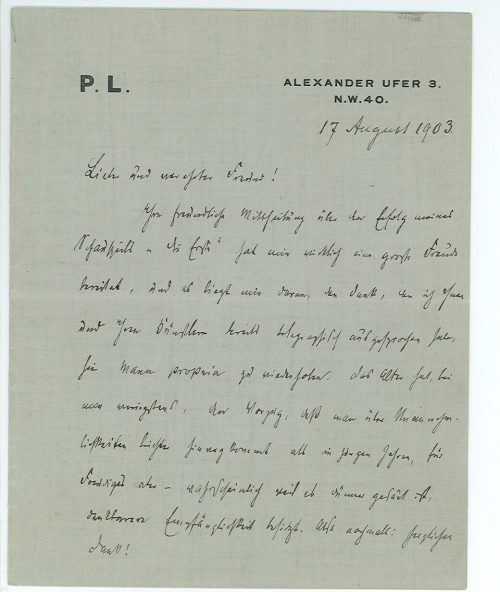 P. L.
ALEXANDER UFER 3.
N.W. 40.
17 August 1903.
Lieber und verehrter Freund!
Ihre freundliche Mittheilung über den Erfolg meines
Schauspiels „Die Erste“ hat mir wirklich eine grosse Freude
bereitet, und es liegt mir daran, den Dank, den ich Ihnen
und Ihren Künstlern bereits telegraphisch ausgesprochen habe,
hier manu propria zu wiederholen. Das Alter hat, bei
mir wenigstens, den Vorzug, daß man über Unannehm-
lichkeiten leichter hinwegkommt als in jungen Jahren, für
Freudiges aber – wahrscheinlich weil es dünner gesät ist,
dankbarere Empfänglichkeit besitzt. Also nochmals: herzlichen
Dank!